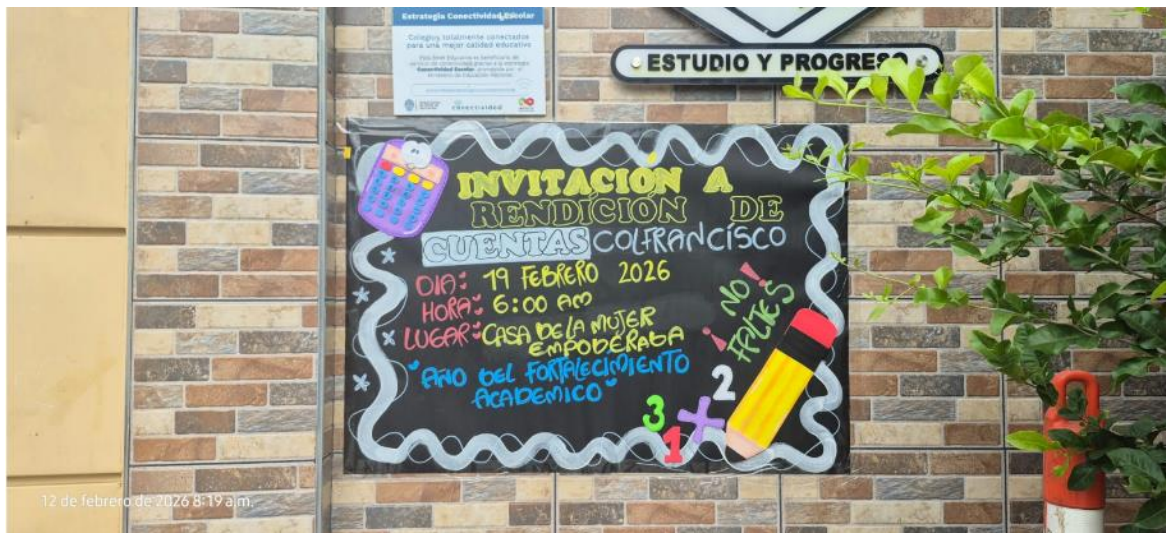 Estrategia Conectividad Escolar
Colegios totalmente conectados
para una mejor calidad educativa
Conectividad Escolar
conectividad
ESTUDIO Y PROGRESO
INVITACIÓN A
RENDICIÓN DE
CUENTAS COLFRANCÍSCO
DIA: 19 FEBRERO 2026
HORA: 6:00 AM
LUGAR: CASA DE LA MUJER
EMPODERADA
"AÑO DEL FORTALECIMIENTO
ACADEMICO"
¡NO
FALTES!
3 2
1
12 de febrero de 2026 8:19 a.m.